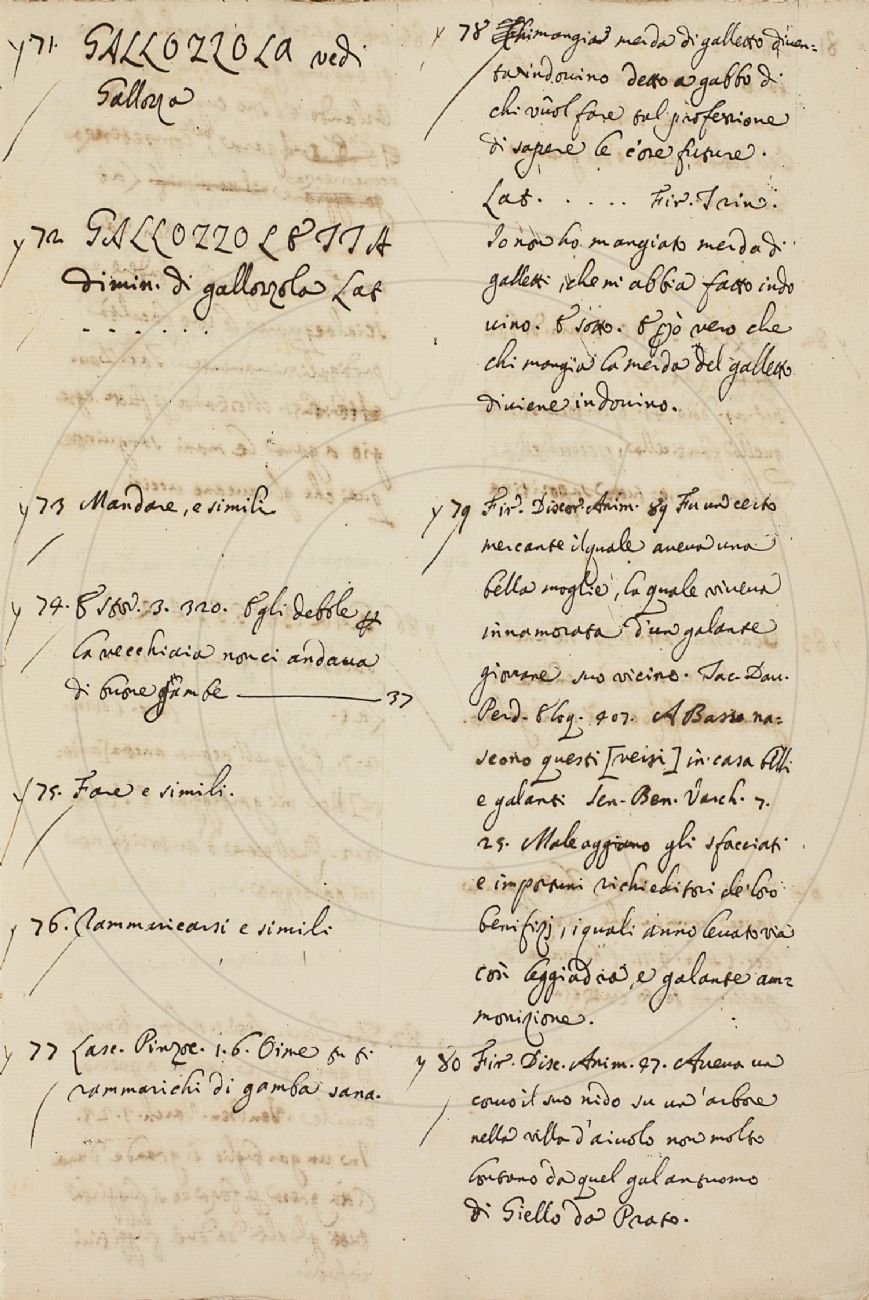 y 71. GALLOZZOLA vedi
Gallozza
y 72 GALLOZZOLETTA
dimin. di gallozzola Lat
. . . . . .
y 73 Mandare, e simili
y 74. E Stor. 3. 320. Egli debole #
la vecchiaia non ci andava
di buone gambe 37
y 75. Fare e simili.
y 76. Rammaricarsi e simili
y 77 Lasc. Pinzoc. 1. 6. Oime tu ti
rammarichi di gamba sana.
y 78 Chi mangia merda di galletto diven=
ta indovino detto a gabbo di
chi vuol fare tal professione
di sapere le cose future.
Lat. . . . . . Fir. Trin.
Io non ho mangiato merda di
galletti, che mi abbia fatto indo
vino. E sotto. E può vero che
chi mangia la merda del galletto
diviene indovino.
y 79 Fir. Discor. Anim. 89 Fu un certo
mercante il quale aveva una
bella moglie, la quale viveva
innamorata d'un galante
giovane suo vicino. Jac. Dav.
Perd. Eloq. 407. A Basso na=
scono questi [versi] in casa belli
e galanti Sen. Ben. Varch. 7.
25. Male aggiano gli sfacciati
e importuni richieditori de loro
benifizj, i quali anno levato via
così leggiadra, e galante am=
monizione.
y 80 Fir. Disc. Anim. 47. Aveva un
corvo il suo nido su un'arbore
nella villa d'aiuolo non molto
lontano da quel galantuomo
di Giello da Prato.